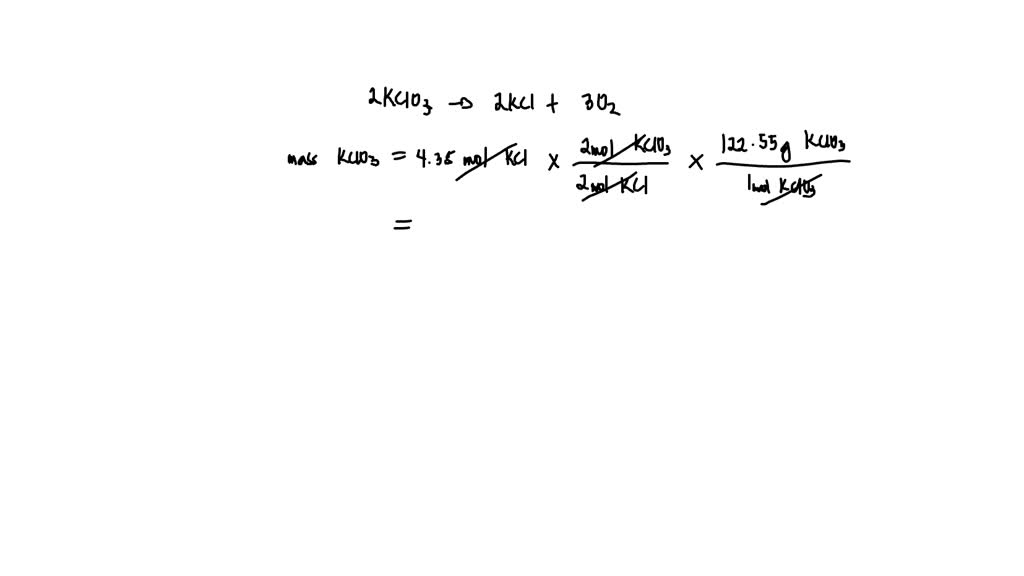 2KClO3 → 2KCl + 3O2
mass KClO3 = 4.35 mol KCl × 2mol KClO3 / 2mol KCl × 122.55g KClO3 / 1mol KClO3
=